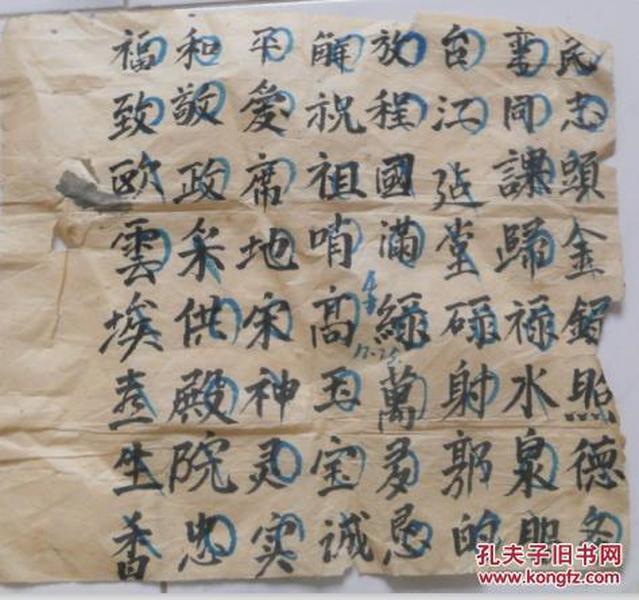 民志頭金照德
同課歸禄水泉
台江堂碌射郭的
放程國滿綠萬多
解祝祖哨高玉宝誠
平愛席地宋神灵实
和敬政采供殿院忠
福致欧雲埃生香
孔夫子旧书网
www.kongfz.com